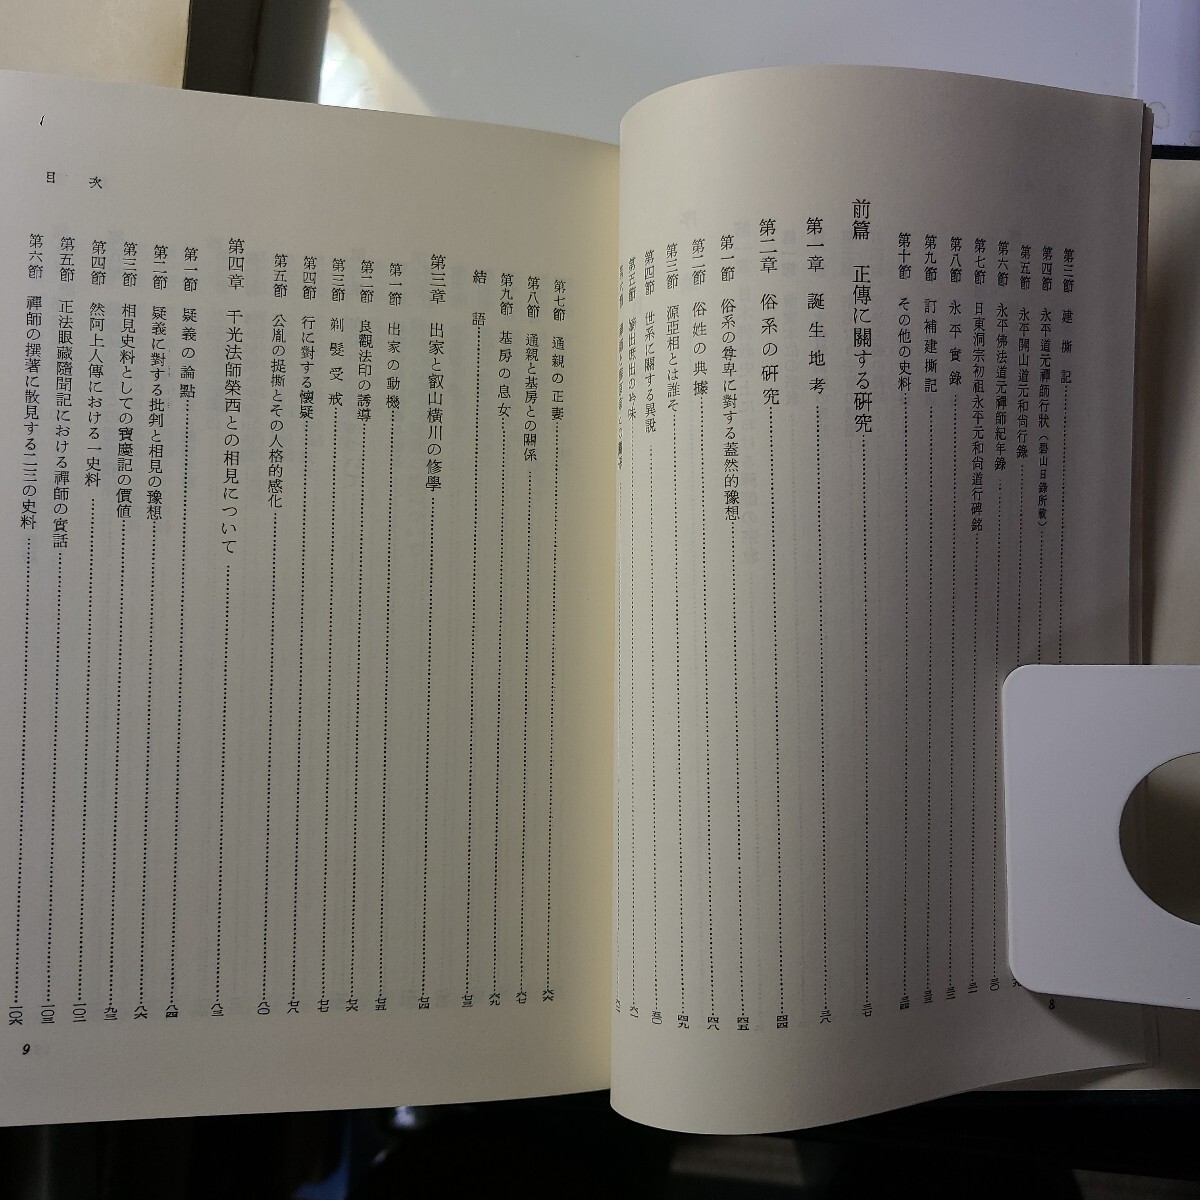 第三節　建撕記
第四節　永平道元禪師行狀（碧山日錄所載）
第五節　永平開山道元和尙行錄
第六節　永平佛法道元禪師紀年錄……三〇
第七節　日東洞宗初祖永平元和尙道行碑銘……三一
第八節　永平實錄……三二
第九節　訂補建撕記……三三
第十節　その他の史料……三四
前篇　正傳に關する硏究……三七
第一章　誕生地考……三八
第二章　俗系の硏究……四四
第一節　俗系の尊卑に對する蓋然的豫想……四五
第二節　俗姓の典據……四八
第三節　源亞相とは誰そ……四九
第四節　世系に關する異說……五〇
第五節　嫡出庶出の吟味……六一
8
目次
第七節　通親の正妻……六六
第八節　通親と基房との關係……六七
第九節　基房の息女……六九
結語……七三
第三章　出家と叡山橫川の修學……七四
第一節　出家の動機……七五
第二節　良觀法印の誘導……七六
第三節　剃髮受戒……七七
第四節　行に對する懷疑……七八
第五節　公胤の提撕とその人格的感化……八〇
第四章　千光法師榮西との相見について……八三
第一節　疑義の論點……八四
第二節　疑義に對する批判と相見の豫想……八六
第三節　相見史料としての寶慶記の價値……九三
第四節　然阿上人傳における一史料……一〇二
第五節　正法眼藏隨聞記における禪師の實話……一〇三
第六節　禪師の撰著に散見する二三の史料……一〇六
9